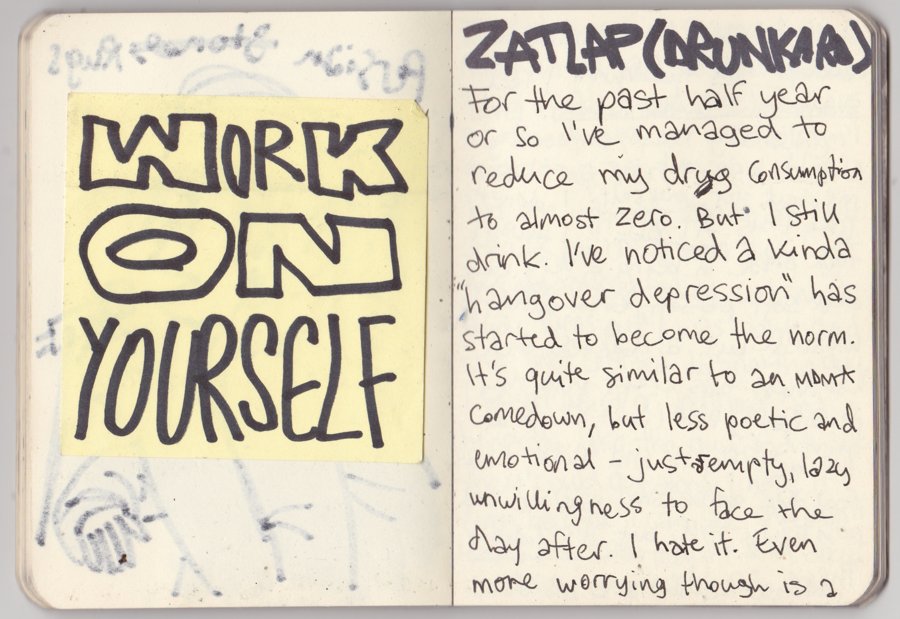 WORK
ON
YOURSELF
ZATLAP (DRUNKARD)
For the past half year
or so I've managed to
reduce my drug consumption
to almost zero. But I still
drink. I've noticed a kinda
"hangover depression" has
started to become the norm.
It's quite similar to an MDMA
comedown, but less poetic and
emotional – just empty, lazy
unwillingness to face the
day after. I hate it. Even
more worrying though is a